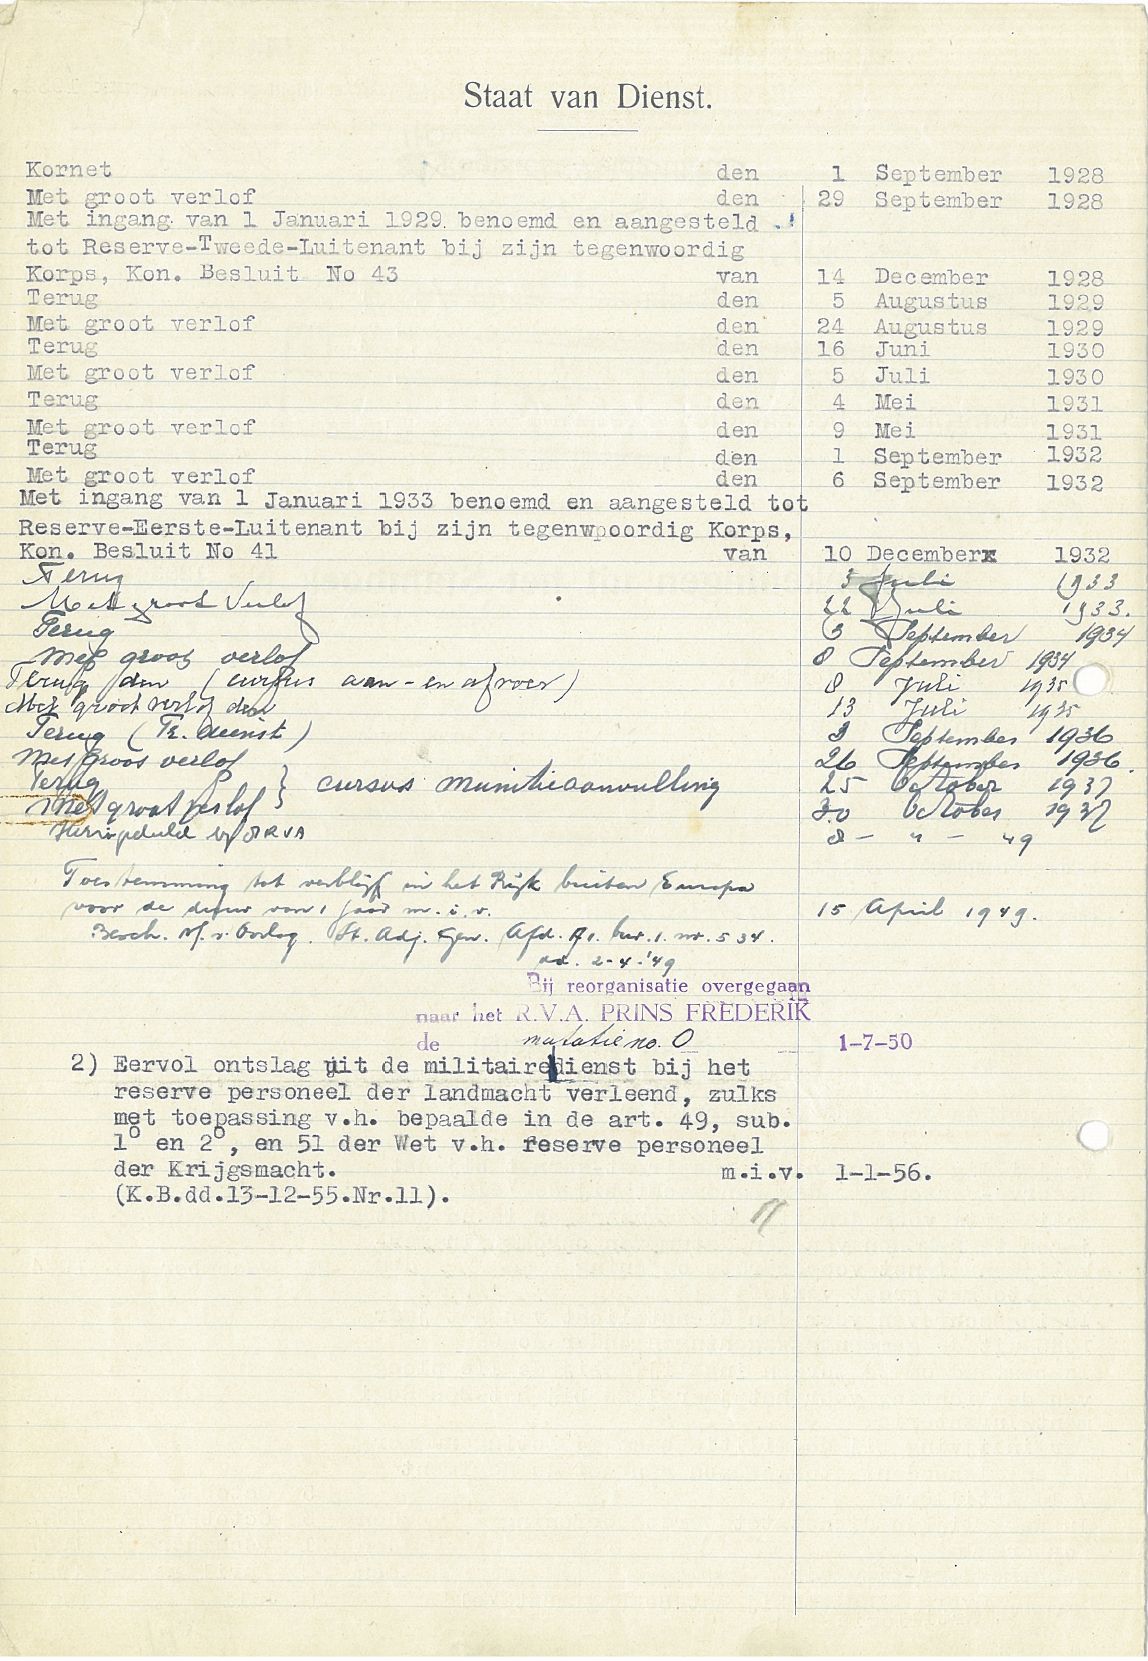 Staat van Dienst.
Kornet den 1 September 1928
Met groot verlof den 29 September 1928
Met ingang van 1 Januari 1929 benoemd en aangesteld
tot Reserve-Tweede-Luitenant bij zijn tegenwoordig
Korps, Kon. Besluit No 43 van 14 December 1928
Terug den 5 Augustus 1929
Met groot verlof den 24 Augustus 1929
Terug den 16 Juni 1930
Met groot verlof den 5 Juli 1930
Terug den 4 Mei 1931
Met groot verlof den 9 Mei 1931
Terug den 1 September 1932
Met groot verlof den 6 September 1932
Met ingang van 1 Januari 1933 benoemd en aangesteld tot
Reserve-Eerste-Luitenant bij zijn tegenwpoordig Korps,
Kon. Besluit No 41 van 10 Decemberx 1932
Terug Juli 1933
Met groot Verlof 22 Juli 1933.
Terug 3 September 1934
Met groot verlof 8 September 1934
Terug den (cursus aan- en afvoer) 8 Juli 1935
Met groot verlof den 13 Juli 1935
Terug (Tr. dienst) September 1936
Met groot verlof 26 September 1936.
Terug 25 October 1937
} cursus munitieaanvulling
Met groot verlof 30 October 1937
bij 8 - " - 49
Toestemming tot verblijf in het Rijk buiten Europa
voor de duur van 1 jaar m.i.v. 15 April 1949.
Besch. M.v. Oorlog. St. Adj. Gen. Afd. A1. bur. 1. nr. 534.
dd. 2-4-'49
Bij reorganisatie overgegaan
naar het R.V.A. PRINS FREDERIK
de mutatie no. 0 1-7-50
2) Eervol ontslag uit de militaire dienst bij het
reserve personeel der landmacht verleend, zulks
met toepassing v.h. bepaalde in de art. 49, sub.
1° en 2°, en 51 der Wet v.h. reserve personeel
der Krijgsmacht. m.i.v. 1-1-56.
(K.B.dd.13-12-55.Nr.11).